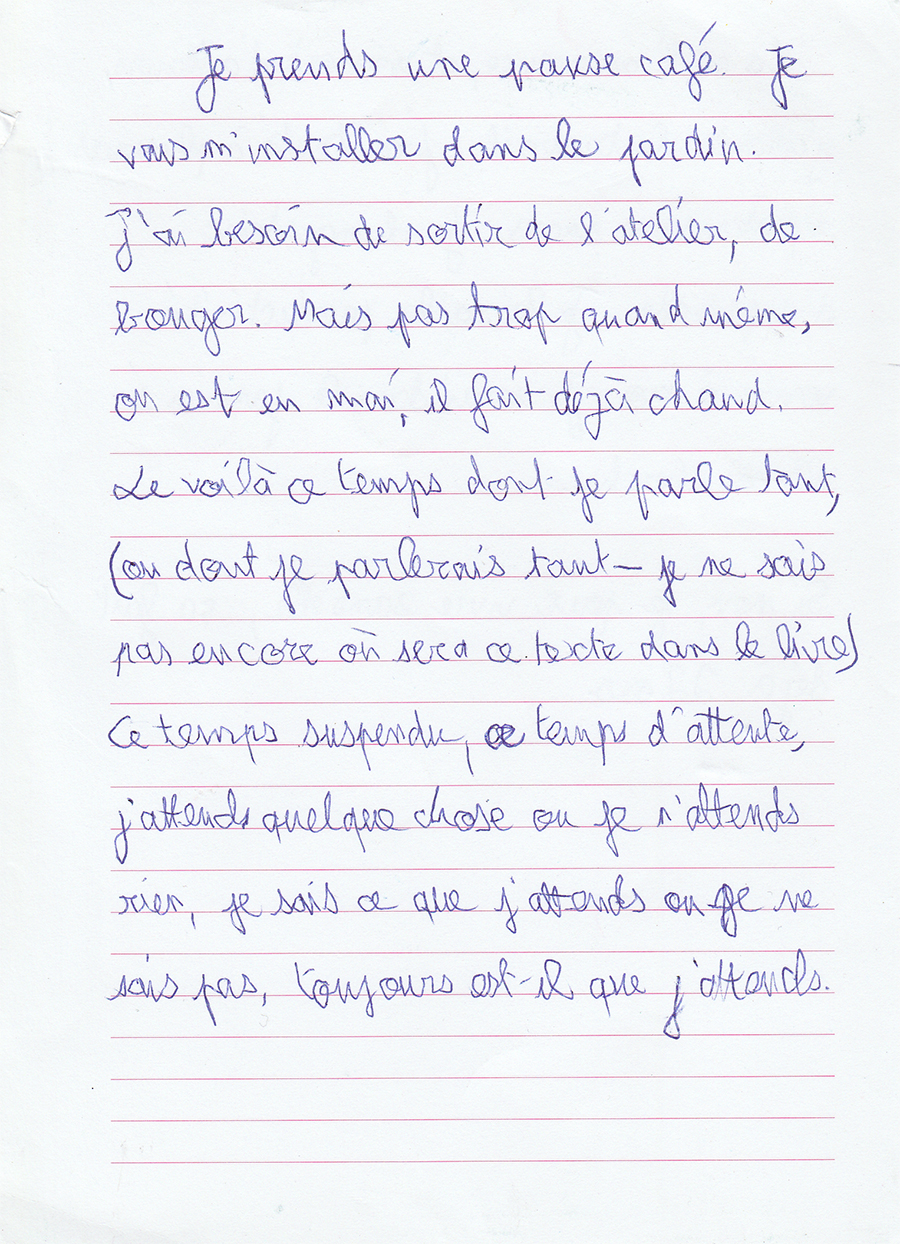 Je prends une pause café. Je
vais m'installer dans le jardin.
J'ai besoin de sortir de l'atelier, de
bouger. Mais pas trop quand même,
on est en mai, il fait déjà chaud.
Le voilà ce temps dont je parle tant,
(ou dont je parlerais tant – je ne sais
pas encore où sera ce texte dans le livre)
Ce temps suspendu, ce temps d'attente,
j'attends quelque chose ou je n'attends
rien, je sais ce que j'attends ou je ne
sais pas, toujours est-il que j'attends.